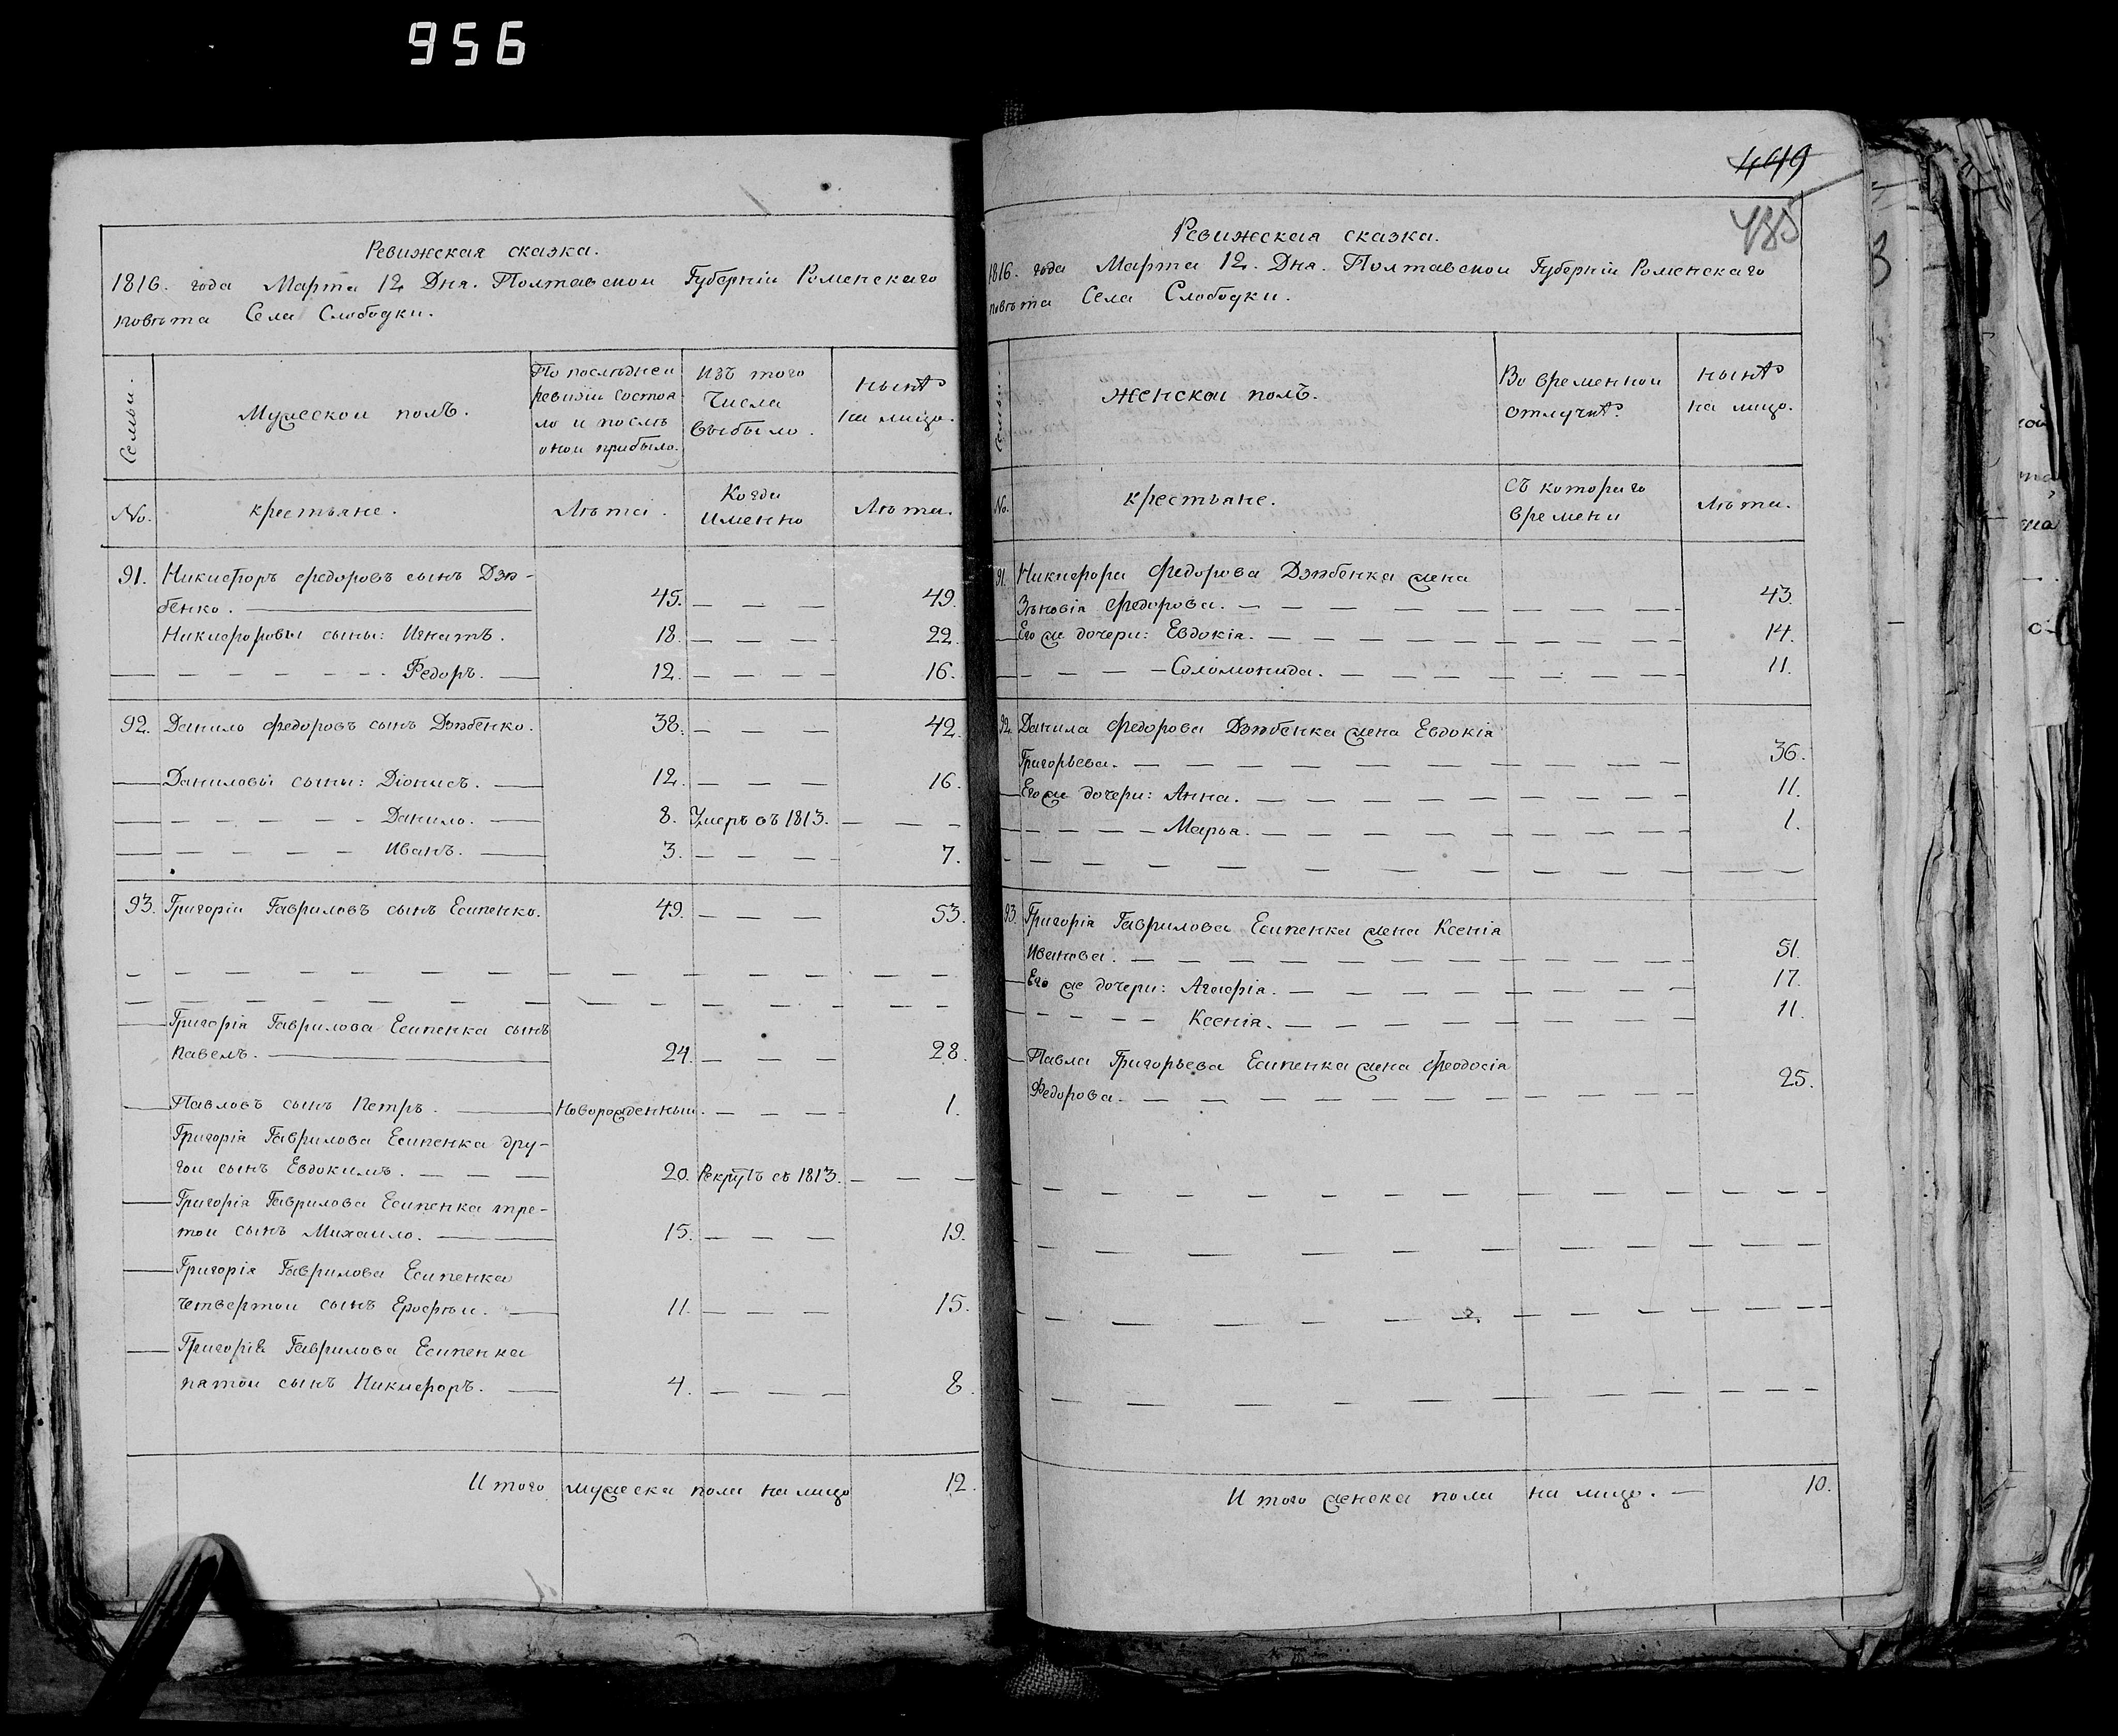 956
Ревижская сказка.
1816. года Марта 12 Дня. Полтавской Губерніи Роменскаго
повѣта Села Слободки.
Семьи.
Мужескои полъ.
По послѣднеи
ревизіи состоя
ло и послѣ
онои прибыло.
Изъ того
Числа
выбыло.
нынѣ
на лицо.
No.
крестьяне.
Лѣта.
Когда
Именно
Лѣта.
91. Никифоръ Федоровъ сынъ Дзю-
бенко. 45. 49.
Никифоровы сыны: Игнатъ. 18. 22.
Федоръ. 12. 16.
92. Данило Федоровъ сынъ Дзюбенко. 38. 42.
Даниловы сыны: Діонисъ. 12. 16.
Данило. 8. Умеръ въ 1813.
Иванъ. 3. 7.
93. Григоріи Гавриловъ сынъ Есипенко. 49. 53.
Григорія Гаврилова Есипенка сынъ
Павелъ. 24. 28.
Павловъ сынъ Петръ. Новорожденныи. 1.
Григорія Гаврилова Есипенка дру-
гои сынъ Евдокимъ. 20. Рекрутъ съ 1813.
Григорія Гаврилова Есипенка тре-
тои сынъ Михаило. 15. 19.
Григорія Гаврилова Есипенка
четвертои сынъ Ерофѣи. 11. 15.
Григорія Гаврилова Есипенка
пятои сынъ Никифоръ. 4. 8.
Итого мужеска пола на лицо 12.
449
485
Ревижская сказка.
1816. года Марта 12. Дня. Полтавскои Губерніи Роменскаго
повѣта Села Слободки.
Семьи.
Женскаи полъ.
Во временнои
отлучкѣ.
нынѣ
на лицо.
No.
крестьяне.
съ котораго
времени
Лѣта.
91. Никифора Федорова Дзюбенка жена
Зѣновія Федорова. 43.
Его же дочери: Евдокія. 14.
Соломонида. 11.
92. Данила Федорова Дзюбенка жена Евдокія
Григорьева. 36.
Его же дочери: Анна. 11.
Марья. 1.
93. Григорія Гаврилова Есипенка жена Ксенія
Иванова. 51.
Его же дочери: Агафія. 17.
Ксенія. 11.
Павла Григорьева Есипенка жена Феодосія
Федорова. 25.
Итого женска пола на лицо. 10.